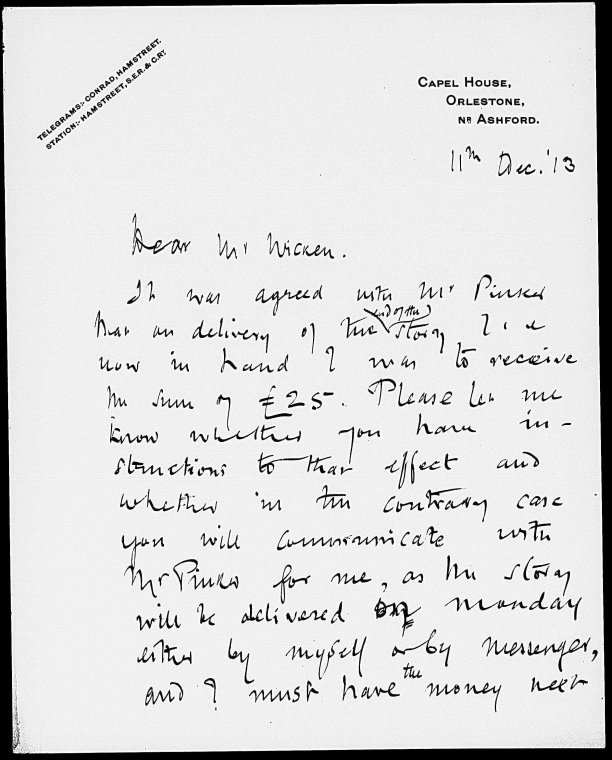 TELEGRAMS:- CONRAD, HAMSTREET.
STATION:- HAMSTREET, S.E.R. & C.RY.
CAPEL HOUSE,
ORLESTONE,
NR ASHFORD.
11th Dec. '13
Dear Mr Wicken.
It was agreed with Mr Pinker
(end of the)
that on delivery of the story I
now in hand I was to receive
the sum of £25. Please let me
know whether you have in-
structions to that effect and
whether in the contrary case
you will communicate with
Mr Pinker for me, as the story
will be delivered on monday
either by myself or by messenger,
and I must have the money next